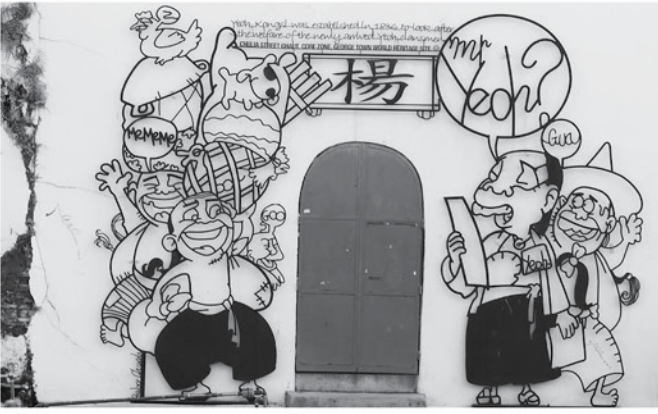 Yeoh Kongsi was established in 1836 to look after
the welfare of the newly arrived Yeoh clansmen
CHULIA STREET GHAUT, CORE ZONE, GEORGE TOWN WORLD HERITAGE SITE
楊
Mr
Yeoh?
Gua
MeMeMe
Yeoh